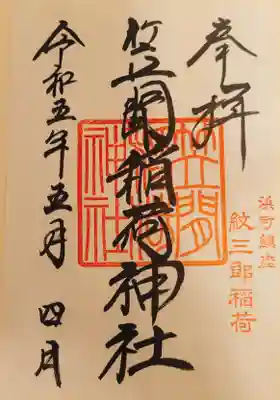 奉拝
浜町鎮座
紋三郎稲荷
笠間稲荷神社
笠間稲荷神社
令和五年五月四日